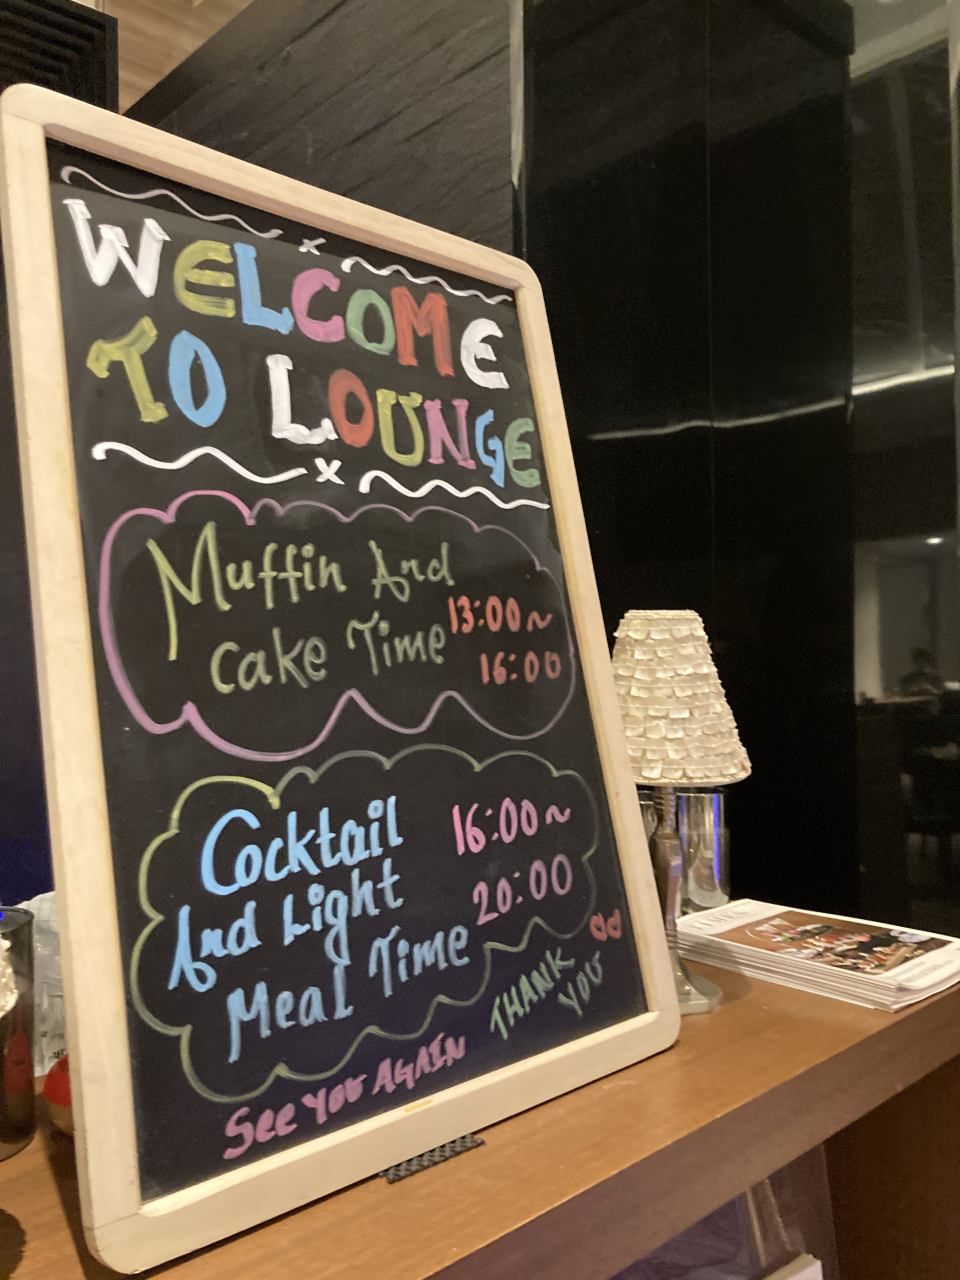 WELCOME
TO LOUNGE
Muffin And
Cake Time
13:00~
16:00
Cocktail
And Light
Meal Time
16:00~
20:00
THANK
YOU
SEE YOU AGAIN